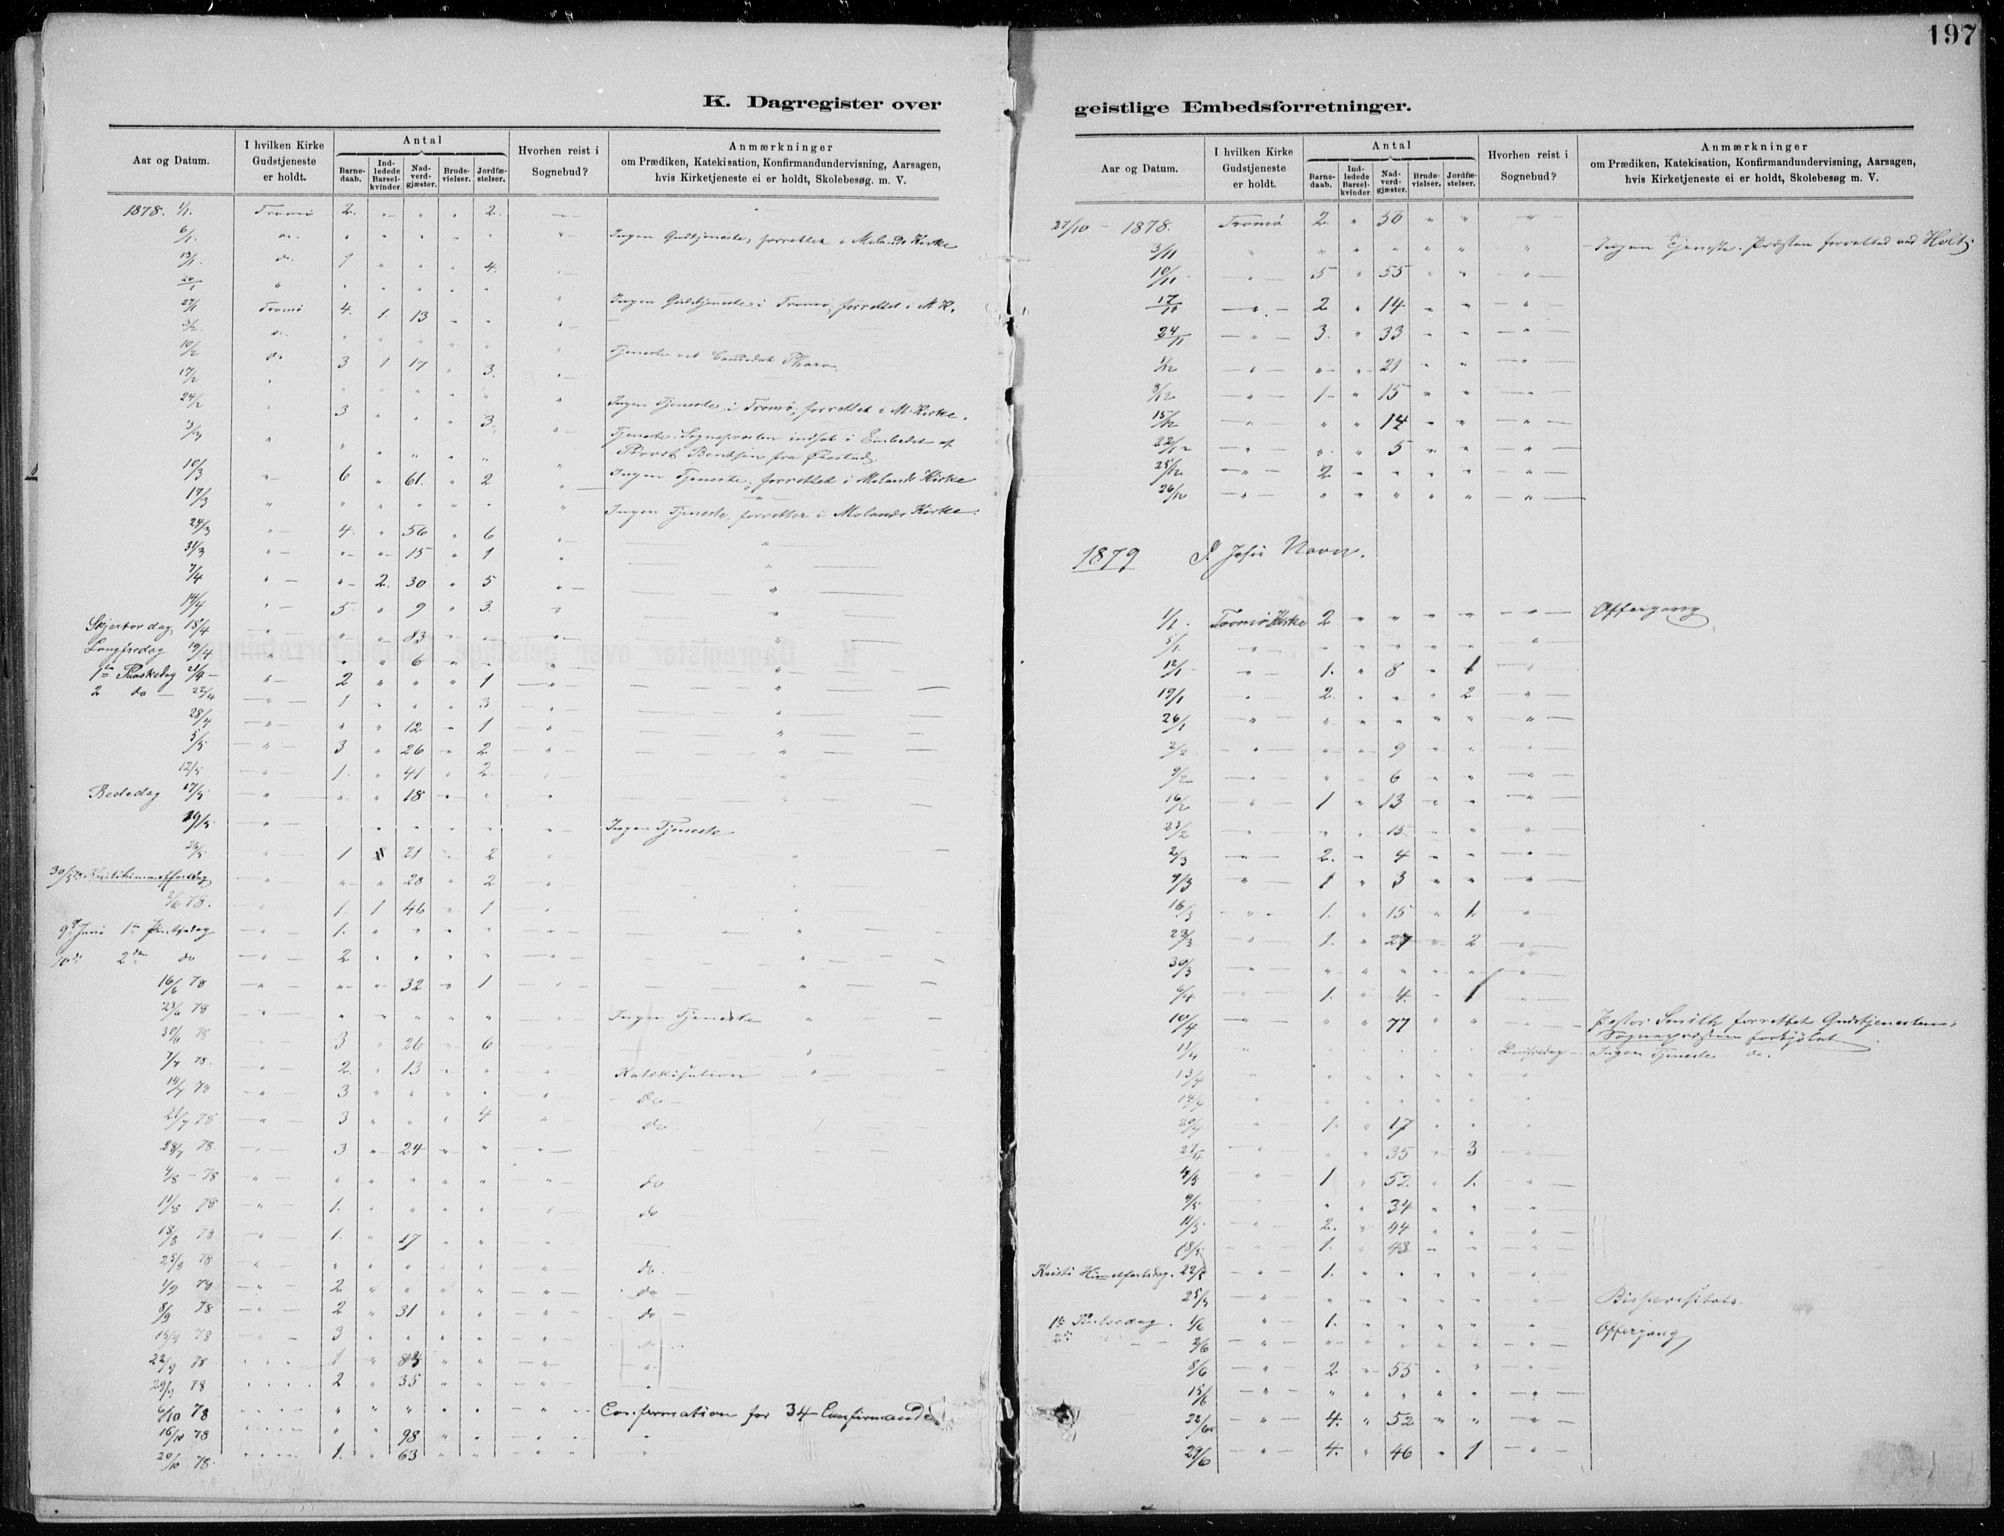 197
K. Dagregister over
Aar og Datum.
I hvilken Kirke Gudstjeneste er holdt.
Antal
Barne-daab.
Ind-ledede Barsel-kvinder.
Nad-verd-gjæster.
Brude-vielser.
Jordfæ-stelser.
Hvorhen reist i Sognebud?
Anmærkninger
om Prædiken, Katekisation, Konfirmandundervisning, Aarsagen,
hvis Kirketjeneste ei er holdt, Skolebesøg m. V.
1878. 1/1. Tromø 2. 2.
6/1. do. Ingen Gudstjeneste, forrettet i Molands Kirke
13/1 do. 1 4.
20/1
27/1 Tromø 4. 1. 13 Ingen Gudstjeneste i Tromø, forrettet i M. K.
3/2 do.
10/2 do 3 1 17 3. Tjeneste ved Candidat
17/2
24/2 3 3. Ingen Tjeneste i Tromø, forrettet i M. Kirke.
3/3 Tjeneste. Sognepresten indsat i Embedet af
Provst Berntsen fra
10/3 6 61. 2 Ingen Tjeneste, forrettet i Molands Kirke
17/3 Ingen Tjeneste, forretter i Molands Kirke.
24/3 4. 56 6
31/3 15 1
7/4 2. 30 5
14/4 5. 9 3.
Skjertorsdag 18/4 83
Langfredag 19/4 6
1ste Paaskedag 21/4 2 1
2 do 22/4 1 3
28/4 12 1
5/5 3 26 2
12/5 1. 41 2.
Bededag 17/5 18
19/5 Ingen Tjeneste
26/5 1 21 2
30/5 Kristihimmelfartsdag 28 2
2/6 78. 1. 1 46 1
9de Juni 1ste Pintsedag 1.
10de 2den do 2
16/6 78 32 1
23/6 78 Ingen Tjeneste
30/6 78 3 26 6
7/7 78. 2. 13 Katekisation
14/7 78 3 do
21/7 78 3 4 do
28/7 78. 3 24
4/8 - 78 do
11/8 78 1. do
18/8 78 1. 17
25/8 78 do.
1/9 78 2 do
8/9 78 2 31 do
15/9 78 3
22/9 78. 1
29/9 78 2 35
6/10 78 Confirmation for 34 Confirmander
16/10 78 98
20/10 78. 1. 63
geistlige Embedsforretninger.
Aar og Datum.
I hvilken Kirke Gudstjeneste er holdt.
Antal
Barne-daab.
Ind-ledede Barsel-kvinder.
Nad-verd-gjæster.
Brude-vielser.
Jordfæ-stelser.
Hvorhen reist i Sognebud?
Anmærkninger
om Prædiken, Katekisation, Konfirmandundervisning, Aarsagen,
hvis Kirketjeneste ei er holdt, Skolebesøg m. V.
27/10 - 1878. Tromø 2. 50
3/11 Ingen Tjeneste. Præsten forrettet ved Holt
10/11 5 55
17/11 2 14
24/11 3. 33
1/12 21
8/12 1 15
15/12 14
22/12 5
25/12 2
26/12
1879 I. Jesu Navn.
1/1. Tromø Kirke 2 Offergang
5/1.
12/1 1. 8 1
19/1 2. 2
26/1
2/2 9
9/2 6
16/2 1 13
23/2 15
2/3 2. 4
9/3 1 3
16/3 1. 15 1.
23/3 1. 27 2
30/3
6/4 1. 4. 1
10/4 77 Pastor Smith forrettet Gudstjenesten,
Sognepræsten forkjølet.
11/4 Langfredag Ingen Tjeneste do.
13/4
14/4
20/4 1. 17
27/4 35 3
4/5 1 52 1.
9/5 34
11/5 2. 44
18/5 1. 43
Kristi Himmelfartsdag. 22/5 1.
25/5 Bispevisitats.
1ste Pintsedag. 1/6 1. Offergang
2de 2/6
8/6 2. 55
15/6
22/6 4. 52
29/6 4. 46 1